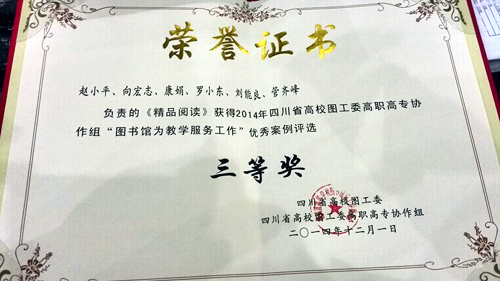 荣誉证书
赵小平、向宏志、康娟、罗小东、刘能良、管齐峰
负责的《精品阅读》获得2014年四川省高校图工委高职高专协
作组“图书馆为教学服务工作”优秀案例评选
三等奖
四川省高校图工委
四川省高校图工委高职高专协作组
二〇一四年十二月一日